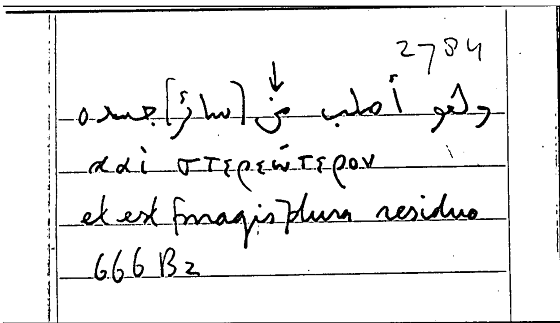 2784
↓
وهو أصلب من [سائر] جسده
καὶ στερεώτερον
et est [magis] dura residuo
666 B 2